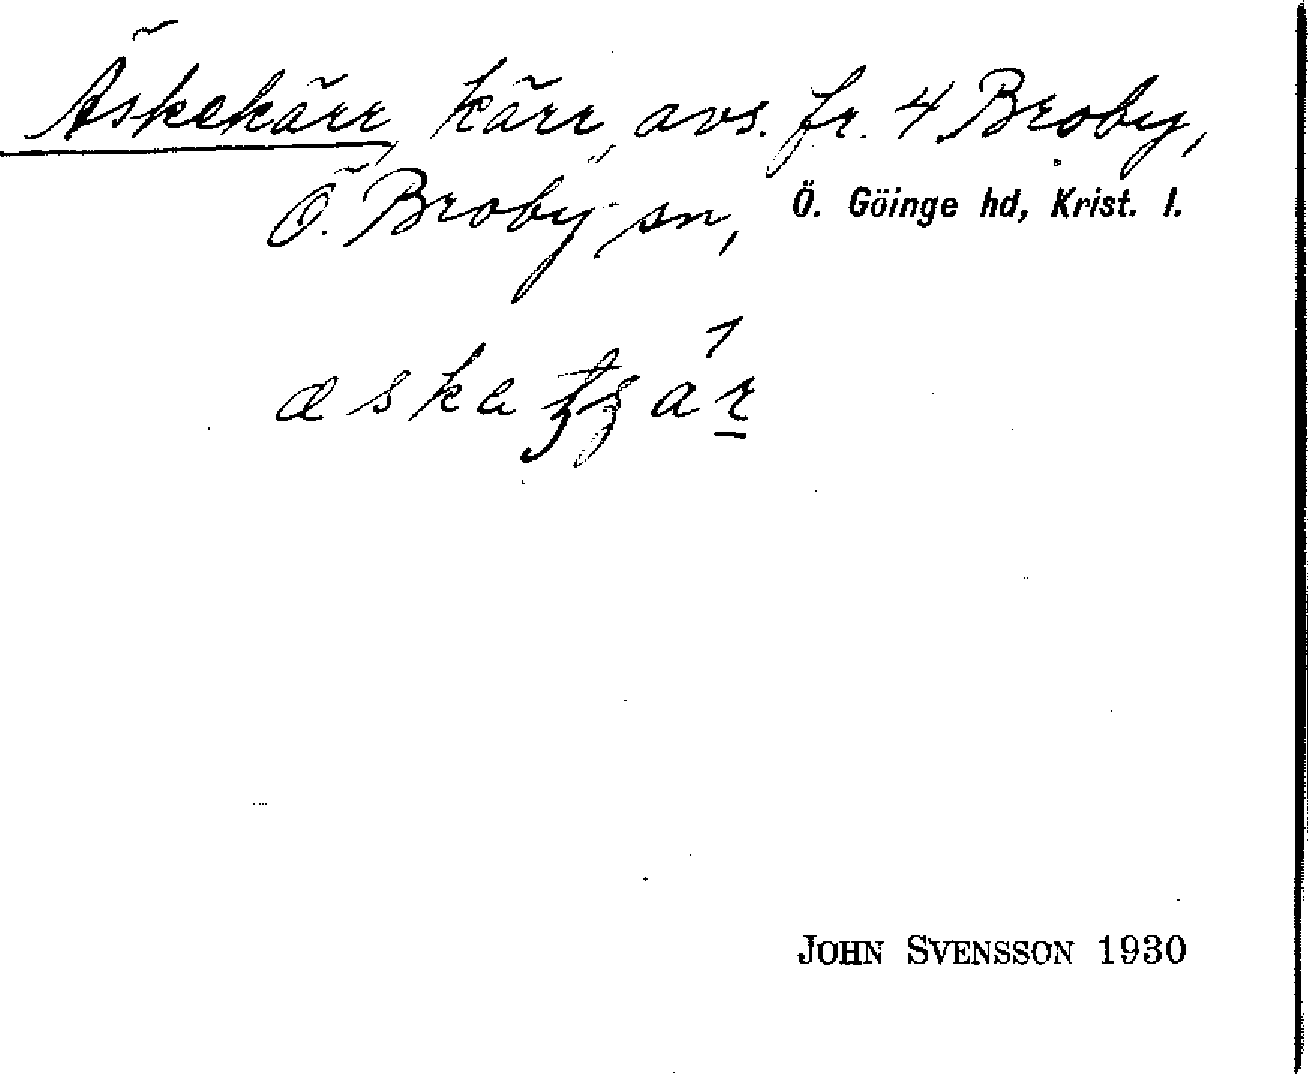 Äskekärr, kärr, avs. fr. 4 Broby,
Ö. Broby sn, Ö. Göinge hd, Krist. l.
JOHN SVENSSON 1930